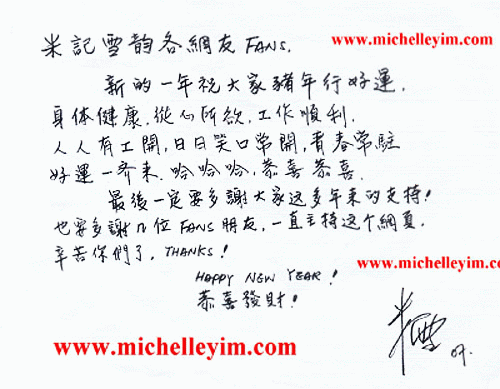 米記雪韵各網友 FANS.
www.michelleyim.com
新的一年祝大家豬年行好運.
身体健康.從心所欲.工作順利.
人人有工開,日日笑口常開,青春常駐
好運一齐来.哈哈哈,恭喜恭喜.
最後一定要多謝大家这多年来的支持!
也要多謝几位 FANS 朋友,一直主持这个網頁.
辛苦你們了, THANKS!
www.michelleyim.com
HAPPY NEW YEAR!
恭喜發財!
www.michelleyim.com
米雪
07.